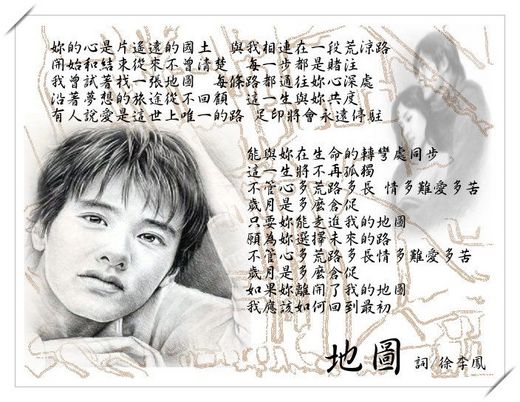 妳的心是片遙遠的國土　與我相連在一段荒涼路
開始和結束從來不曾清楚　每一步都是賭注
我曾試著找一張地圖　每條路都通往妳心深處
沿著夢想的旅途從不回顧　這一生與妳共度
有人說愛是這世上唯一的路 足印將會永遠停駐
能與妳在生命的轉彎處同步
這一生將不再孤獨
不管心多荒路多長 情多難愛多苦
歲月是多麼倉促
只要妳能走進我的地圖
願為妳選擇未來的路
不管心多荒路多長情多難愛多苦
歲月是多麼倉促
如果妳離開了我的地圖
我應該如何回到最初
地圖 詞 徐李鳳